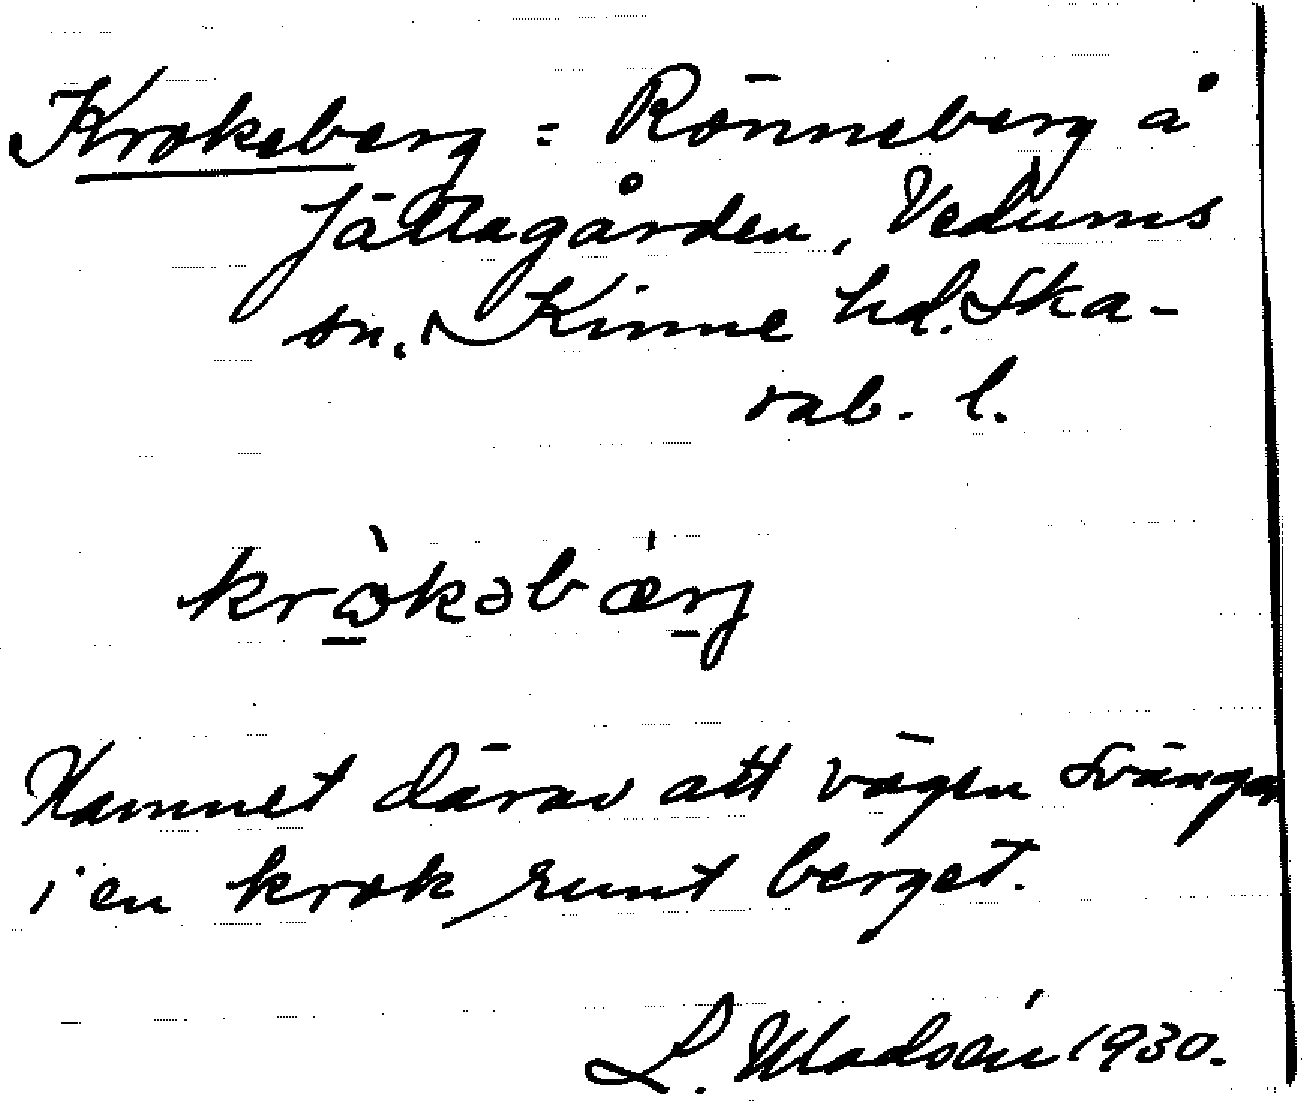 Krokeberg = Rönneberg å
Jättegården, Vedums
sn. Kinne hd. Ska-
rab. l.
krɷ̀kəbærj
Namnet därav att vägen svänger
i en krok runt berget.
L. Madsén 1930.